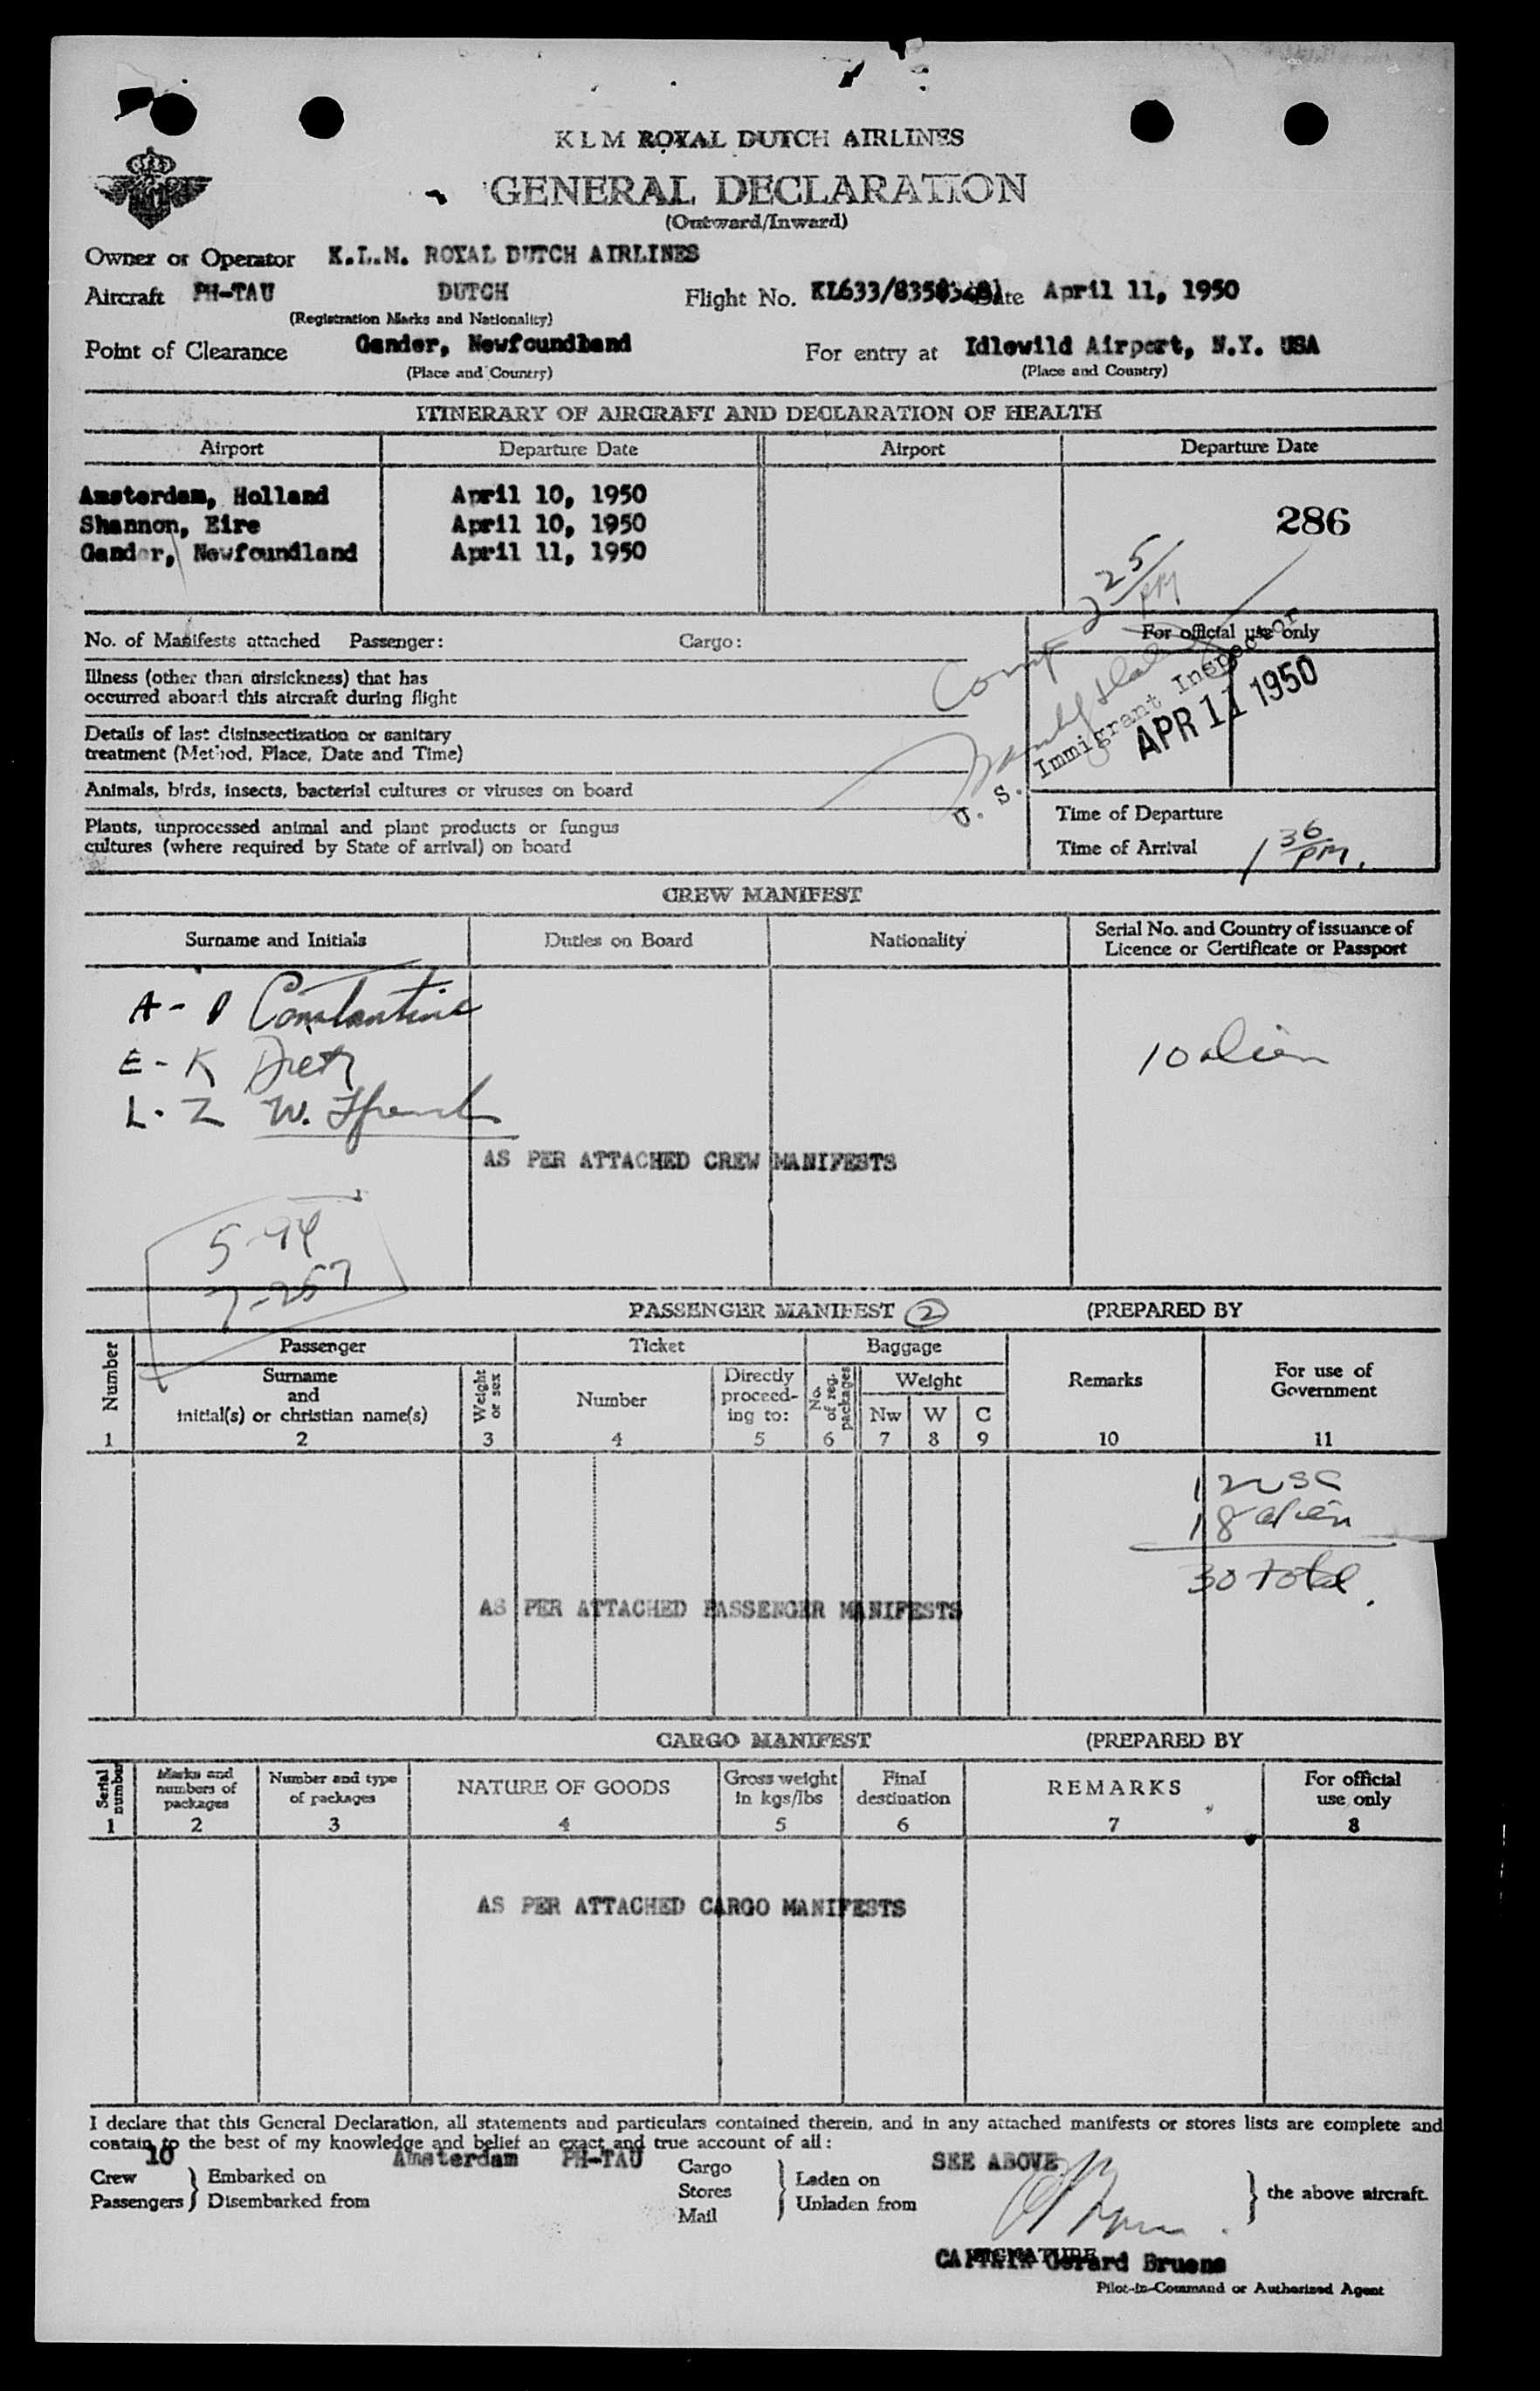 KLM ROYAL DUTCH AIRLINES
GENERAL DECLARATION
(Outward/Inward)
Owner or Operator K.L.M. ROYAL DUTCH AIRLINES
Aircraft PH-TAU DUTCH Flight No. KL633/835 Date April 11, 1950
(Registration Marks and Nationality)
Point of Clearance Gander, Newfoundland For entry at Idlewild Airport, N.Y. USA
(Place and Country) (Place and Country)
ITINERARY OF AIRCRAFT AND DECLARATION OF HEALTH
Airport Departure Date Airport Departure Date
Amsterdam, Holland April 10, 1950
Shannon, Eire April 10, 1950
286
Gander, Newfoundland April 11, 1950
2 25/PM
No. of Manifests attached Passenger: Cargo: For official use only
Illness (other than airsickness) that has
occurred aboard this aircraft during flight
Comp
U. S. Immigrant Inspector
APR 11 1950
Details of last disinsectization or sanitary
treatment (Method, Place, Date and Time)
Animals, birds, insects, bacterial cultures or viruses on board
Plants, unprocessed animal and plant products or fungus
cultures (where required by State of arrival) on board
Time of Departure
Time of Arrival 1 36/PM.
CREW MANIFEST
Surname and Initials Duties on Board Nationality Serial No. and Country of issuance of
Licence or Certificate or Passport
A - D Constantine
E - K Dietz 10 alien
L - Z W.
AS PER ATTACHED CREW MANIFESTS
5-94
7-257
PASSENGER MANIFEST 2 (PREPARED BY
Number Passenger Ticket Baggage Remarks For use of
Government
Surname
and
initial(s) or christian name(s) Weight
or sex Number Directly
proceed-
ing to: No.
of reg.
packages Weight
Nw W C
1 2 3 4 5 6 7 8 9 10 11
12 USC
18 alien
30 total.
AS PER ATTACHED PASSENGER MANIFESTS
CARGO MANIFEST (PREPARED BY
Serial
number Marks and
numbers of
packages Number and type
of packages NATURE OF GOODS Gross weight
in kgs/lbs Final
destination REMARKS For official
use only
1 2 3 4 5 6 7 8
AS PER ATTACHED CARGO MANIFESTS
I declare that this General Declaration, all statements and particulars contained therein, and in any attached manifests or stores lists are complete and
contain to the best of my knowledge and belief an exact and true account of all:
10 Amsterdam PH-TAU SEE ABOVE
Crew Embarked on Cargo Laden on
Passengers Disembarked from Stores Unladen from the above aircraft.
Mail
SIGNATURE
CAPTAIN Gerard Bruens
Pilot-in-Command or Authorized Agent